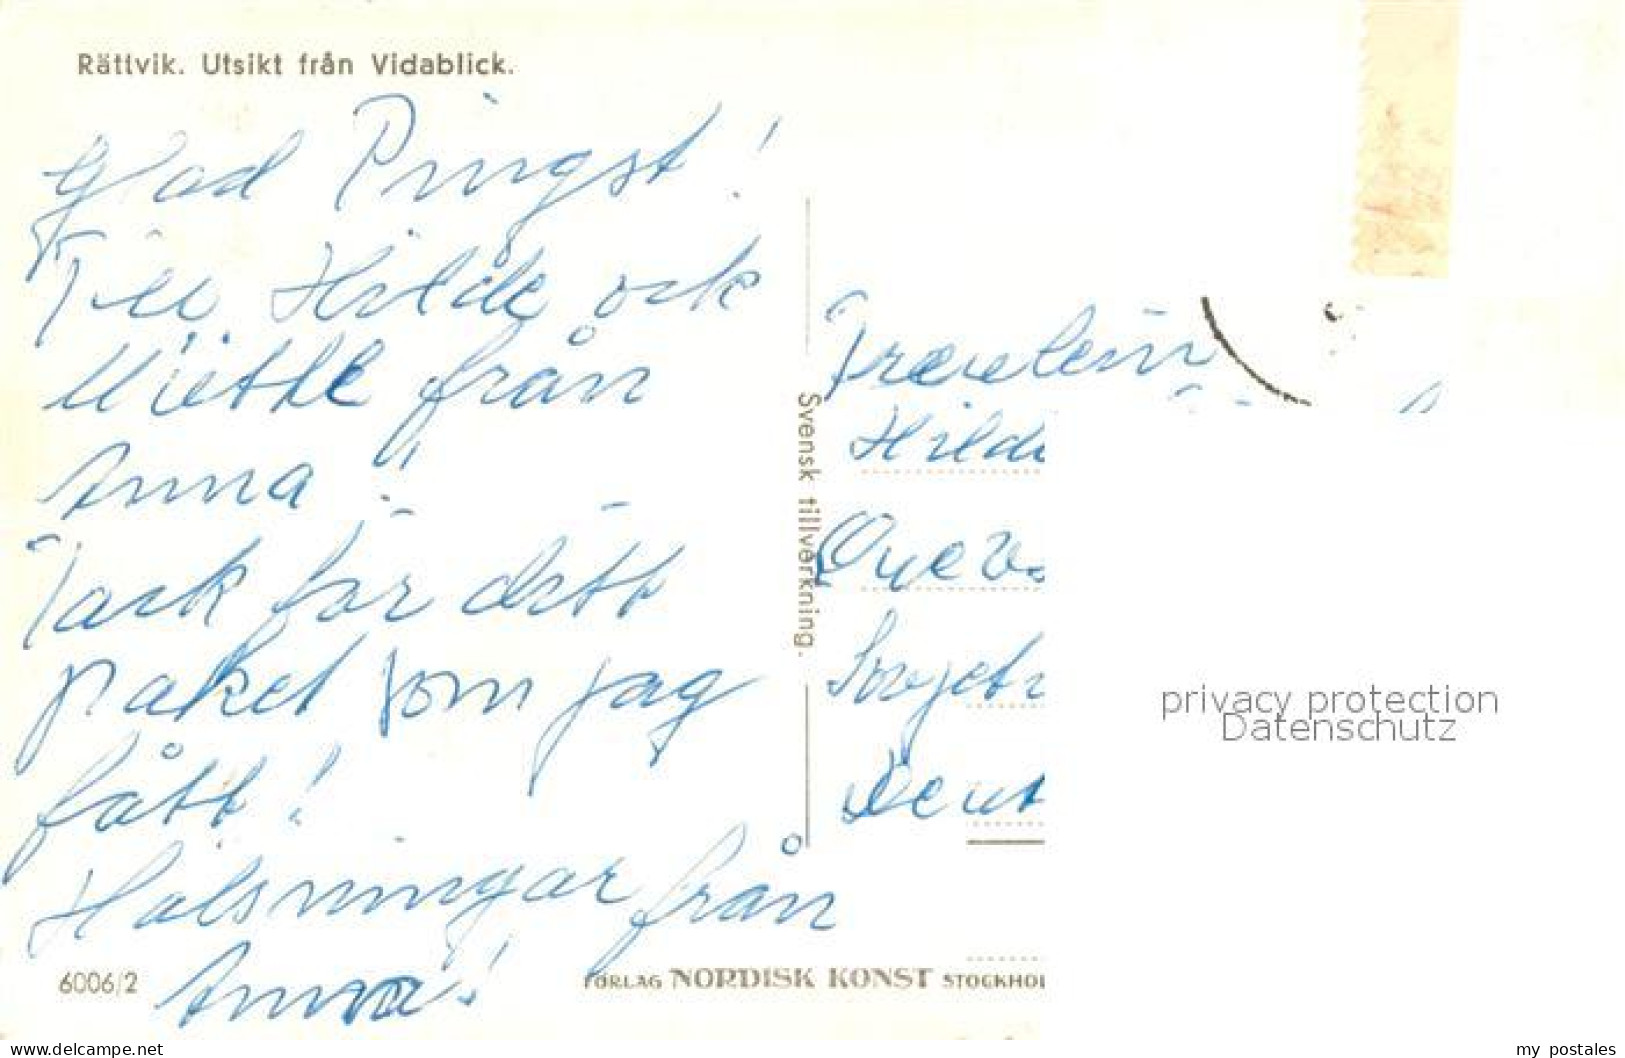 Rättvik. Utsikt från Vidablick.
Glad Pingst!
Till Hilde och
från
Anna!
Tack för ditt
paket som jag
fått!
Hälsningar från
Anna!
6006/2
Svensk tillverkning.
Fraeulein
Hilde
Sovjet
Deut
FÖRLAG NORDISK KONST STOCKHOL
privacy protection
Datenschutz
www.delcampe.net
my_postales